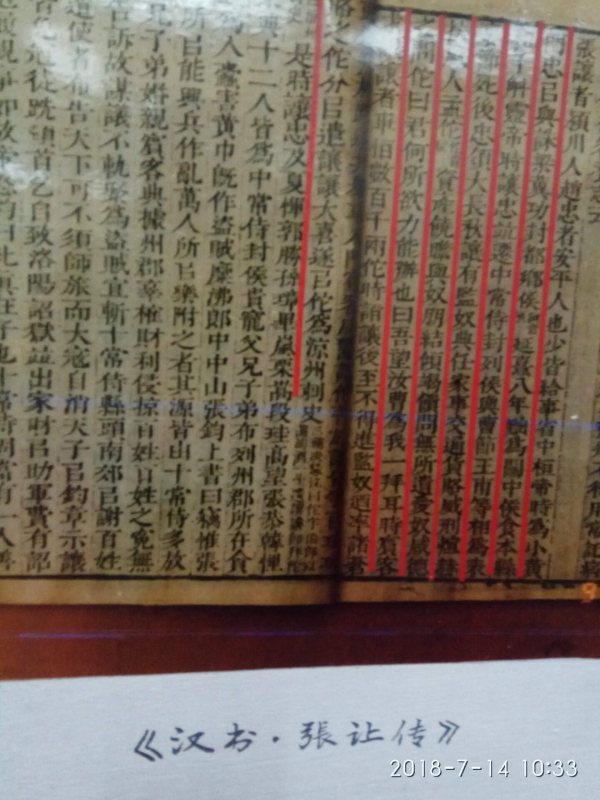 張讓者潁川人趙忠者安平人也少皆給事省中桓帝時為小黃
門忠㠯與誅梁冀功封都鄉侯延熹八年黜為關中侯食本縣
千斛靈帝時讓忠並遷中常侍封列侯與曹節王甫等相為表
節死後忠領大長秋讓有監奴典任家事交通貨賂威形諠赫
人孟佗資產饒贍與奴朋結傾竭饋問無所遺愛奴咸德
之問佗曰君何所欲力能辦也曰吾望汝曹為我一拜耳時賓客
讓者車恒數百千兩佗時詣讓後至不得進監奴迺率諸倉
賂之佗分㠯遺讓讓大喜遂㠯佗為涼州刺史
是時讓忠及夏惲郭勝孫璋畢嵐栗嵩段珪高望張恭韓悝
典十二人皆為中常侍封侯貴寵父兄子弟布列州郡所在貪
為人蠹害黃巾既作盜賊糜沸郎中中山張鈞上書曰竊惟張
所㠯能興兵作亂萬人所㠯樂附之者其源皆由十常侍多放
兄子弟婚親賓客典據州郡辜榷財利侵掠百姓百姓之冤無
告訴故謀議不軌聚為盜賊宜斬十常侍縣頭南郊㠯謝百姓
遣使者布告天下可不須師旅而大寇自消天子㠯鈞章示讓
徒跣頓首乞自致洛陽詔獄並出家財㠯助軍費有詔
視事如故帝怒鈞曰此真狂子也十常侍固當有一人善
《汉书·張让传》
2018-7-14 10:33